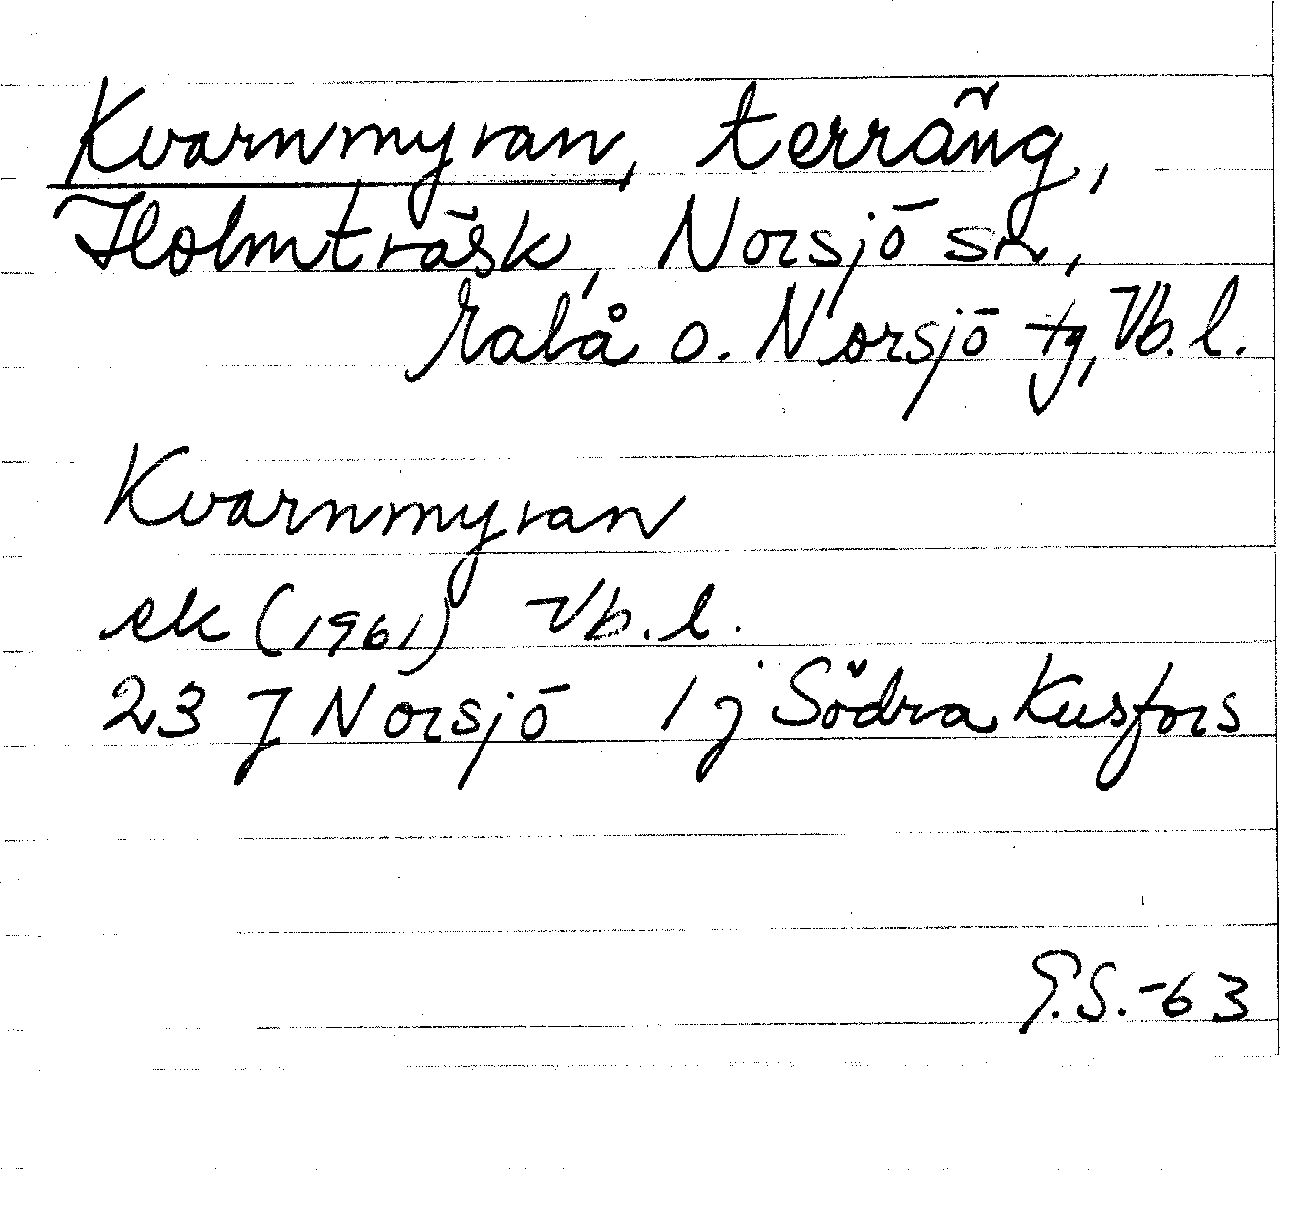 Kvarnmyran, terräng,
Holmträsk, Norsjö sn,
Malå o. Norsjö tg, Vb. l.
Kvarnmyran
ek (1961) Vb. l.
23 J Norsjö 1 j Södra Kusfors
G.S.-63